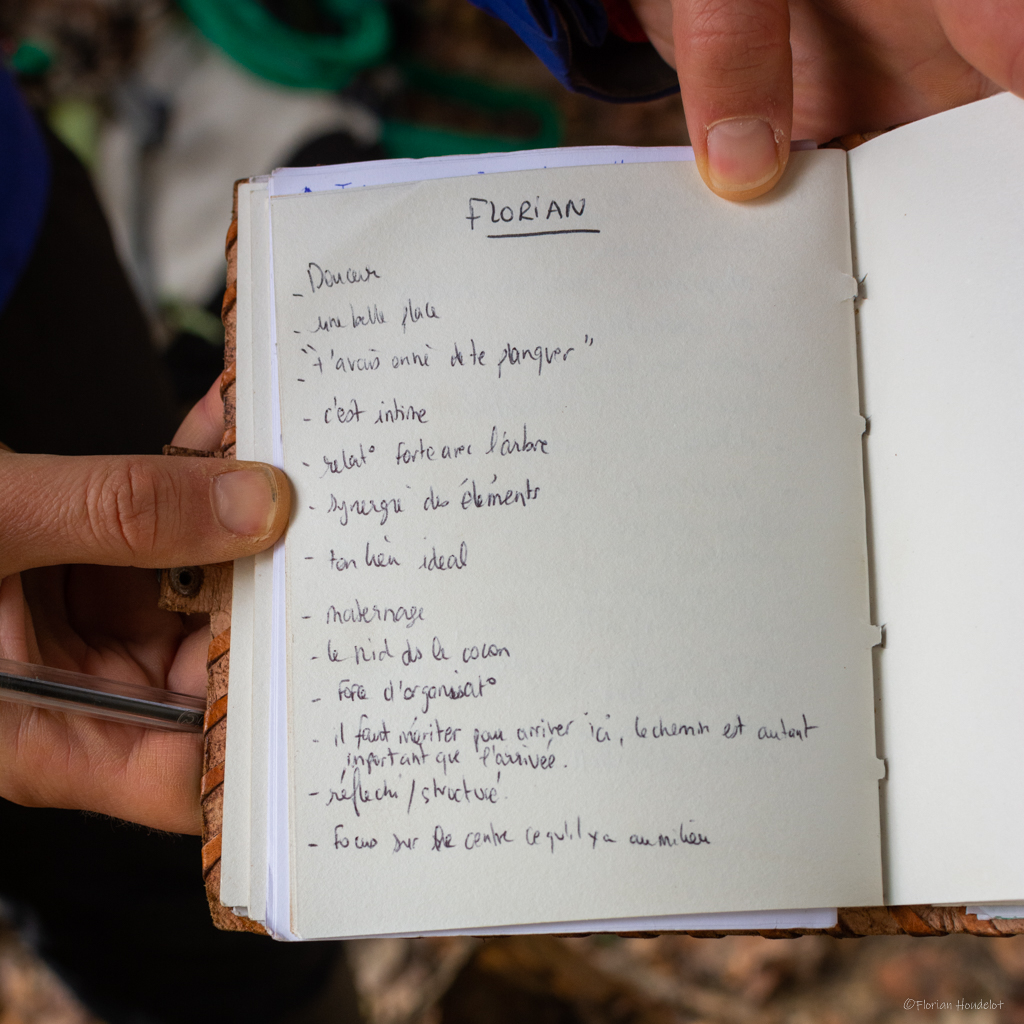 FLORIAN
- Douceur
- une belle place
- "t'avais envie de te planquer"
- c'est intime
- relat° forte avec l'arbre
- synergie des éléments
- ton lieu idéal
- maternage
- le nid ds le cocon
- d'organisat°
- il faut mériter pour arriver ici, le chemin est autant
important que l'arrivée.
- réfléchi / structuré.
- Focus sur le centre ce qu'il y a au milieu
©Florian Houdelot